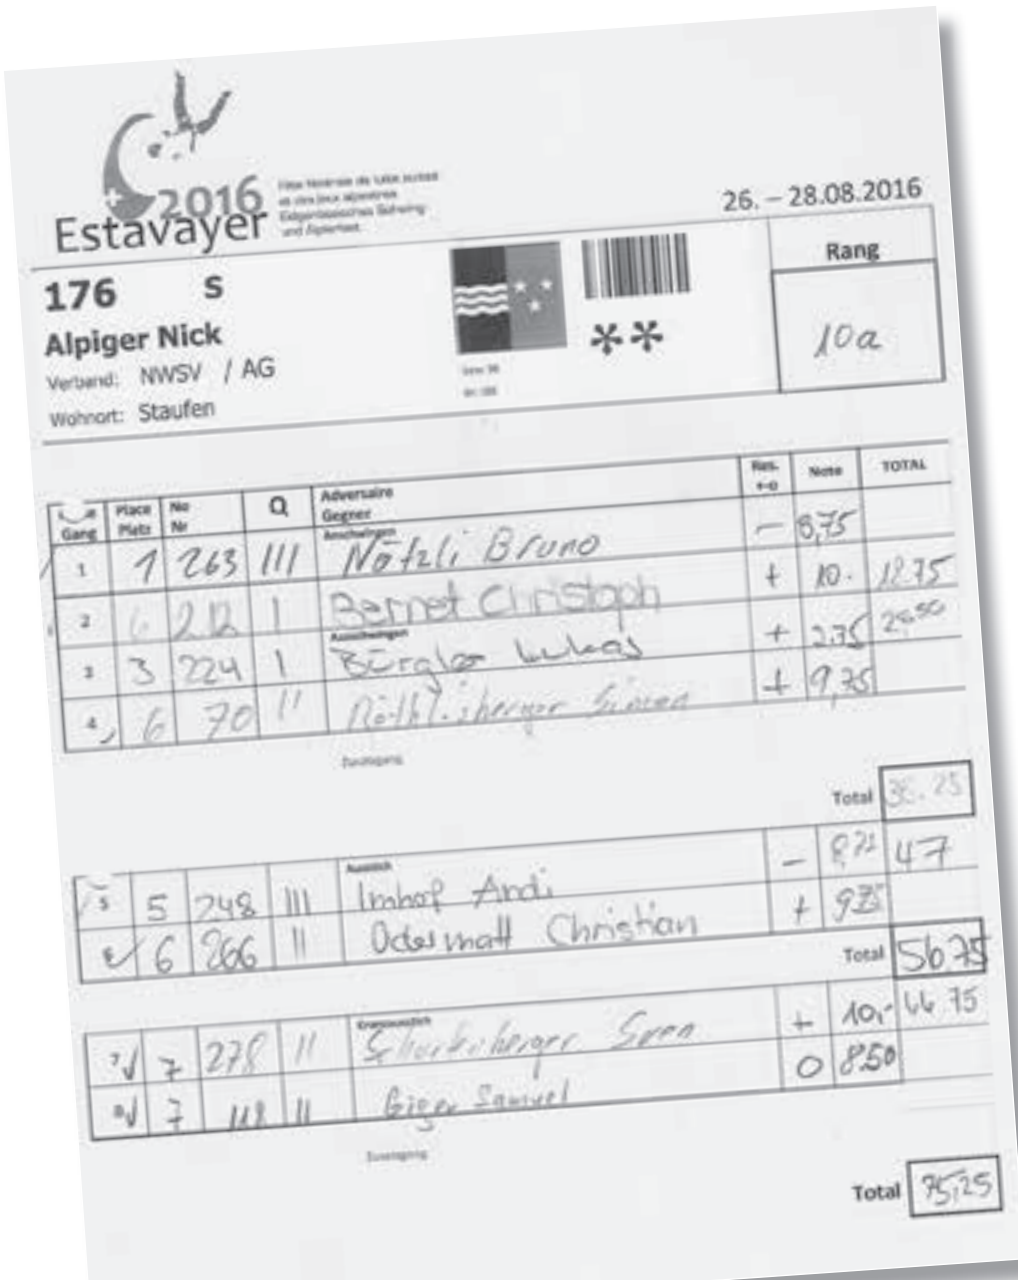 2016
Estavayer
Fête fédérale de lutte suisse
et des jeux alpestres
Eidgenössisches Schwing-
und Älplerfest
26. – 28.08.2016
Rang
10a
176 S
Alpiger Nick
**
Verband: NWSV / AG
Wohnort: Staufen
Gang Place Platz No Nr Q Adversaire Gegner Res. +-o Note TOTAL
Anschwingen
1 1 263 III Nötzli Bruno – 8,75
2 6 212 I Bernet Christoph + 10.- 18.75
Ausschwingen
3 3 224 I Bürgler Lukas +
4 6 70 II Röthlisberger Simon + 9,75
Total
Ausstich
5 5 248 III Imhof Andi – 47
6 6 266 II Odermatt Christian + 9.75
Total 56.75
Kranzausstich
7 7 278 II Schurtenberger Sven + 10,- 66.75
8 7 118 II Giger Samuel 0 8.50
Total 75,25